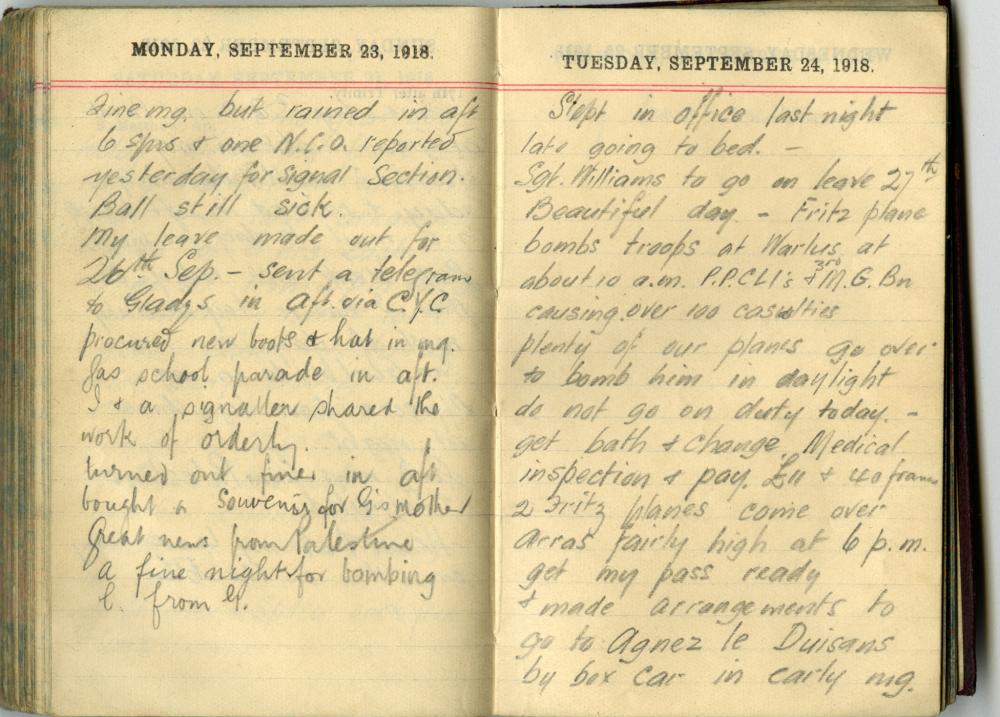 MONDAY, SEPTEMBER 23, 1918.
Fine mg. but rained in aft
6 sprs & one N.C.O. reported
yesterday for Signal Section.
Ball still sick.
My leave made out for
26th Sep. - sent a telegram
to Gladys in aft. via C.Y.C
procured new boots & hat in mg.
Gas school parade in aft.
I & a signaller shared the
work of orderly.
turned out fine in aft
bought a Souvenir for G's mother
Great news from Palestine
a fine night for bombing
L. from G.
TUESDAY, SEPTEMBER 24, 1918.
Slept in office last night
late going to bed. -
Sgt. Williams to go on leave 27th
Beautiful day - Fritz plane
bombs troops at Warlus at
about 10 a.m. P.P.CLI's & 3rd M.G. Bn
causing over 100 casulties
plenty of our planes go over
to bomb him in daylight
do not go on duty today. -
get bath & change. Medical
inspection & pay. £11 & 40 francs
2 Fritz planes come over
Arras fairly high at 6 p.m.
get my pass ready
& made arrangements to
go to Agnez le Duisans
by box car in early mg.